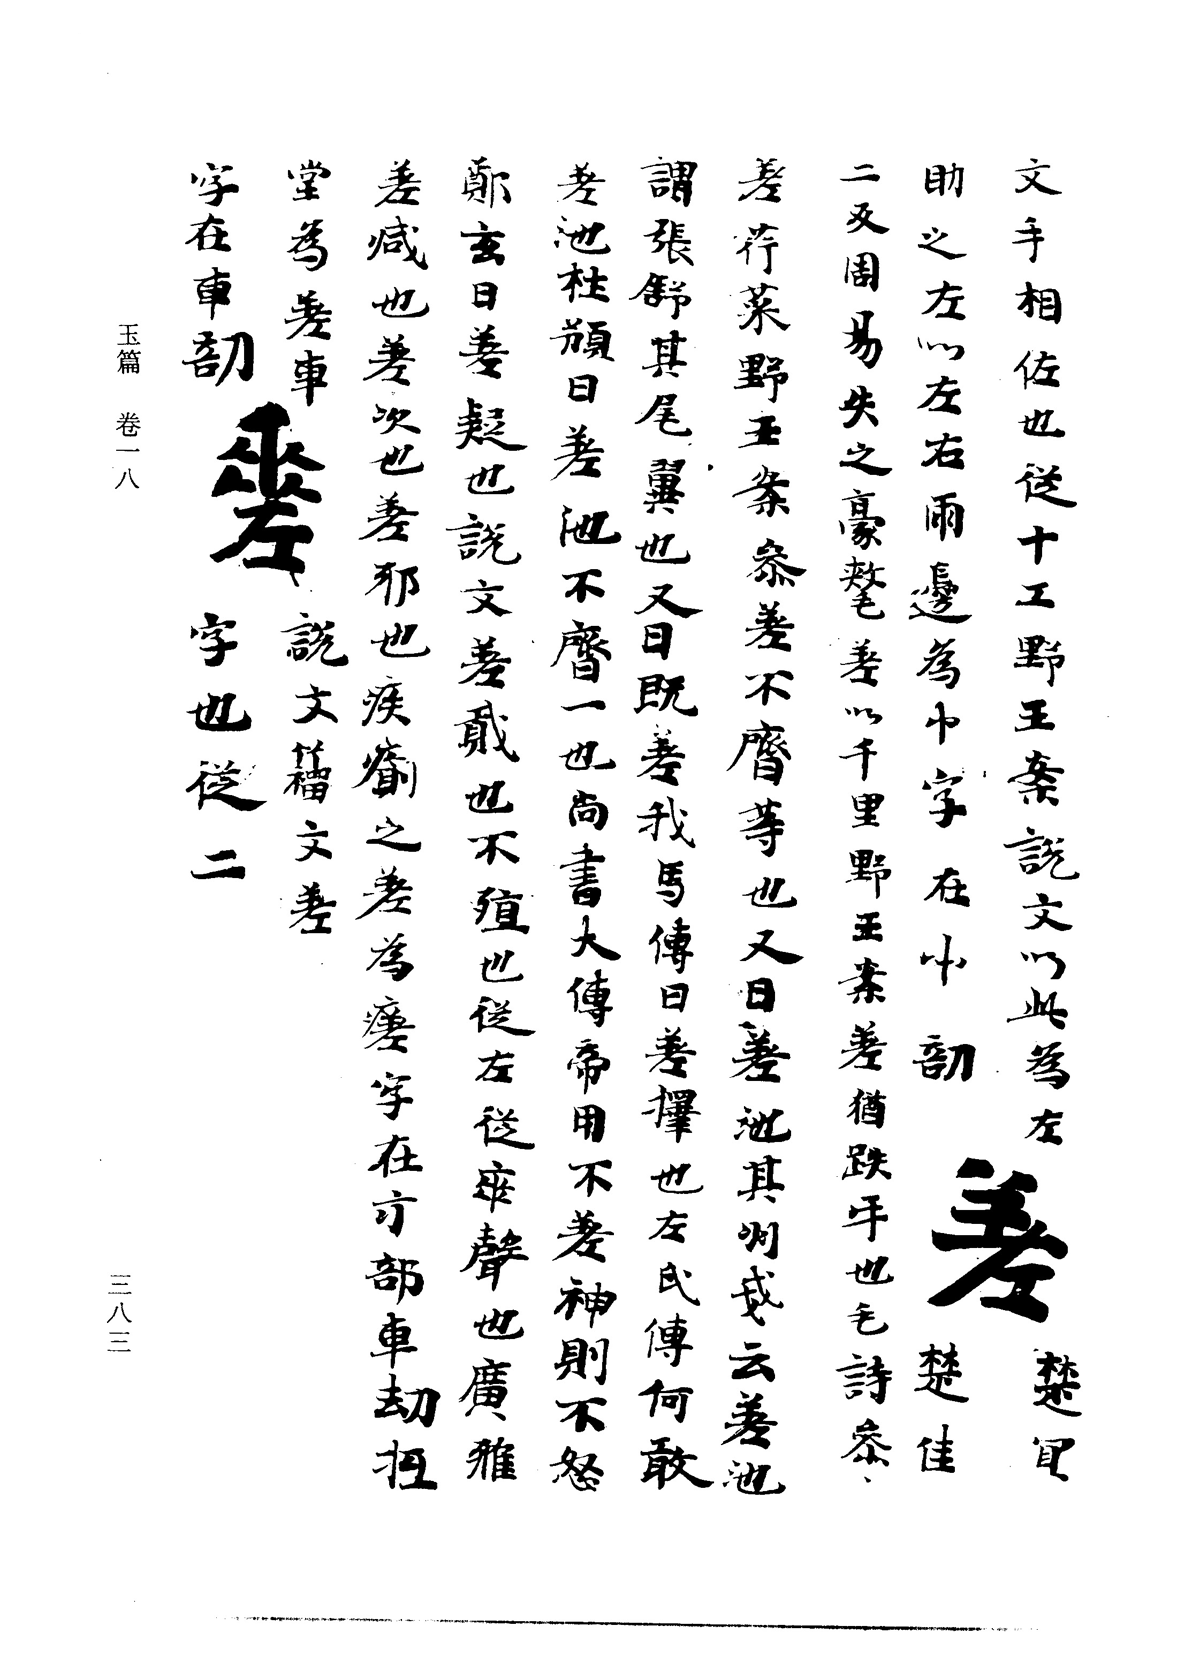 文手相佐也從十工野王案說文以此為左
助之左以左右兩邊為巾字在巾部
差
楚宜
楚佳
二反周易失之豪氂差以千里野王案差猶跌年也毛詩叅
差荇菜野王案叅差不齊等也又曰差池其羽戔云差池
謂張舒其尾翼也又曰既差我馬傳曰差擇也左氏傳何敢
差池杜頠曰差池不齊一也尚書大傳帝用不差神則不怒
鄭玄曰差疑也說文差貳也不殖也從左從𠂹聲也廣雅
差減也差次也差邪也疾瘉之差為瘥字在疒部車劫抠
堂為差車
字在車部
𢀩
說文籀文差
字也從二
玉篇 卷一八
三八三